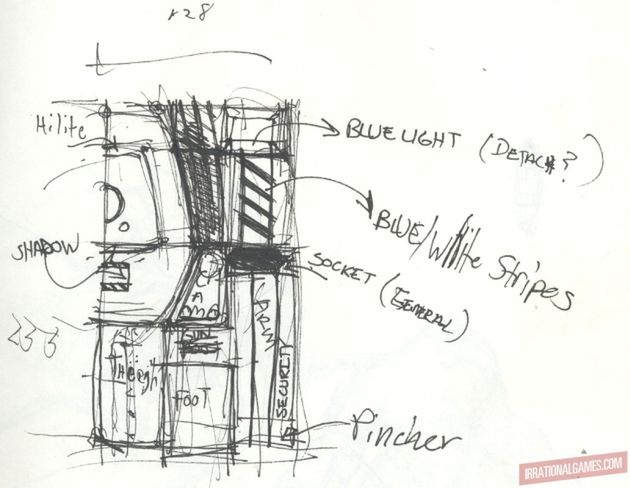 128
Hilite
BLUE LIGHT (DETACH?)
BLUE/White Stripes
SHADOW
SOCKET (General)
ARM
GUN
Theegh
FOOT
SECURITY
Pincher
IRRATIONALGAMES.COM